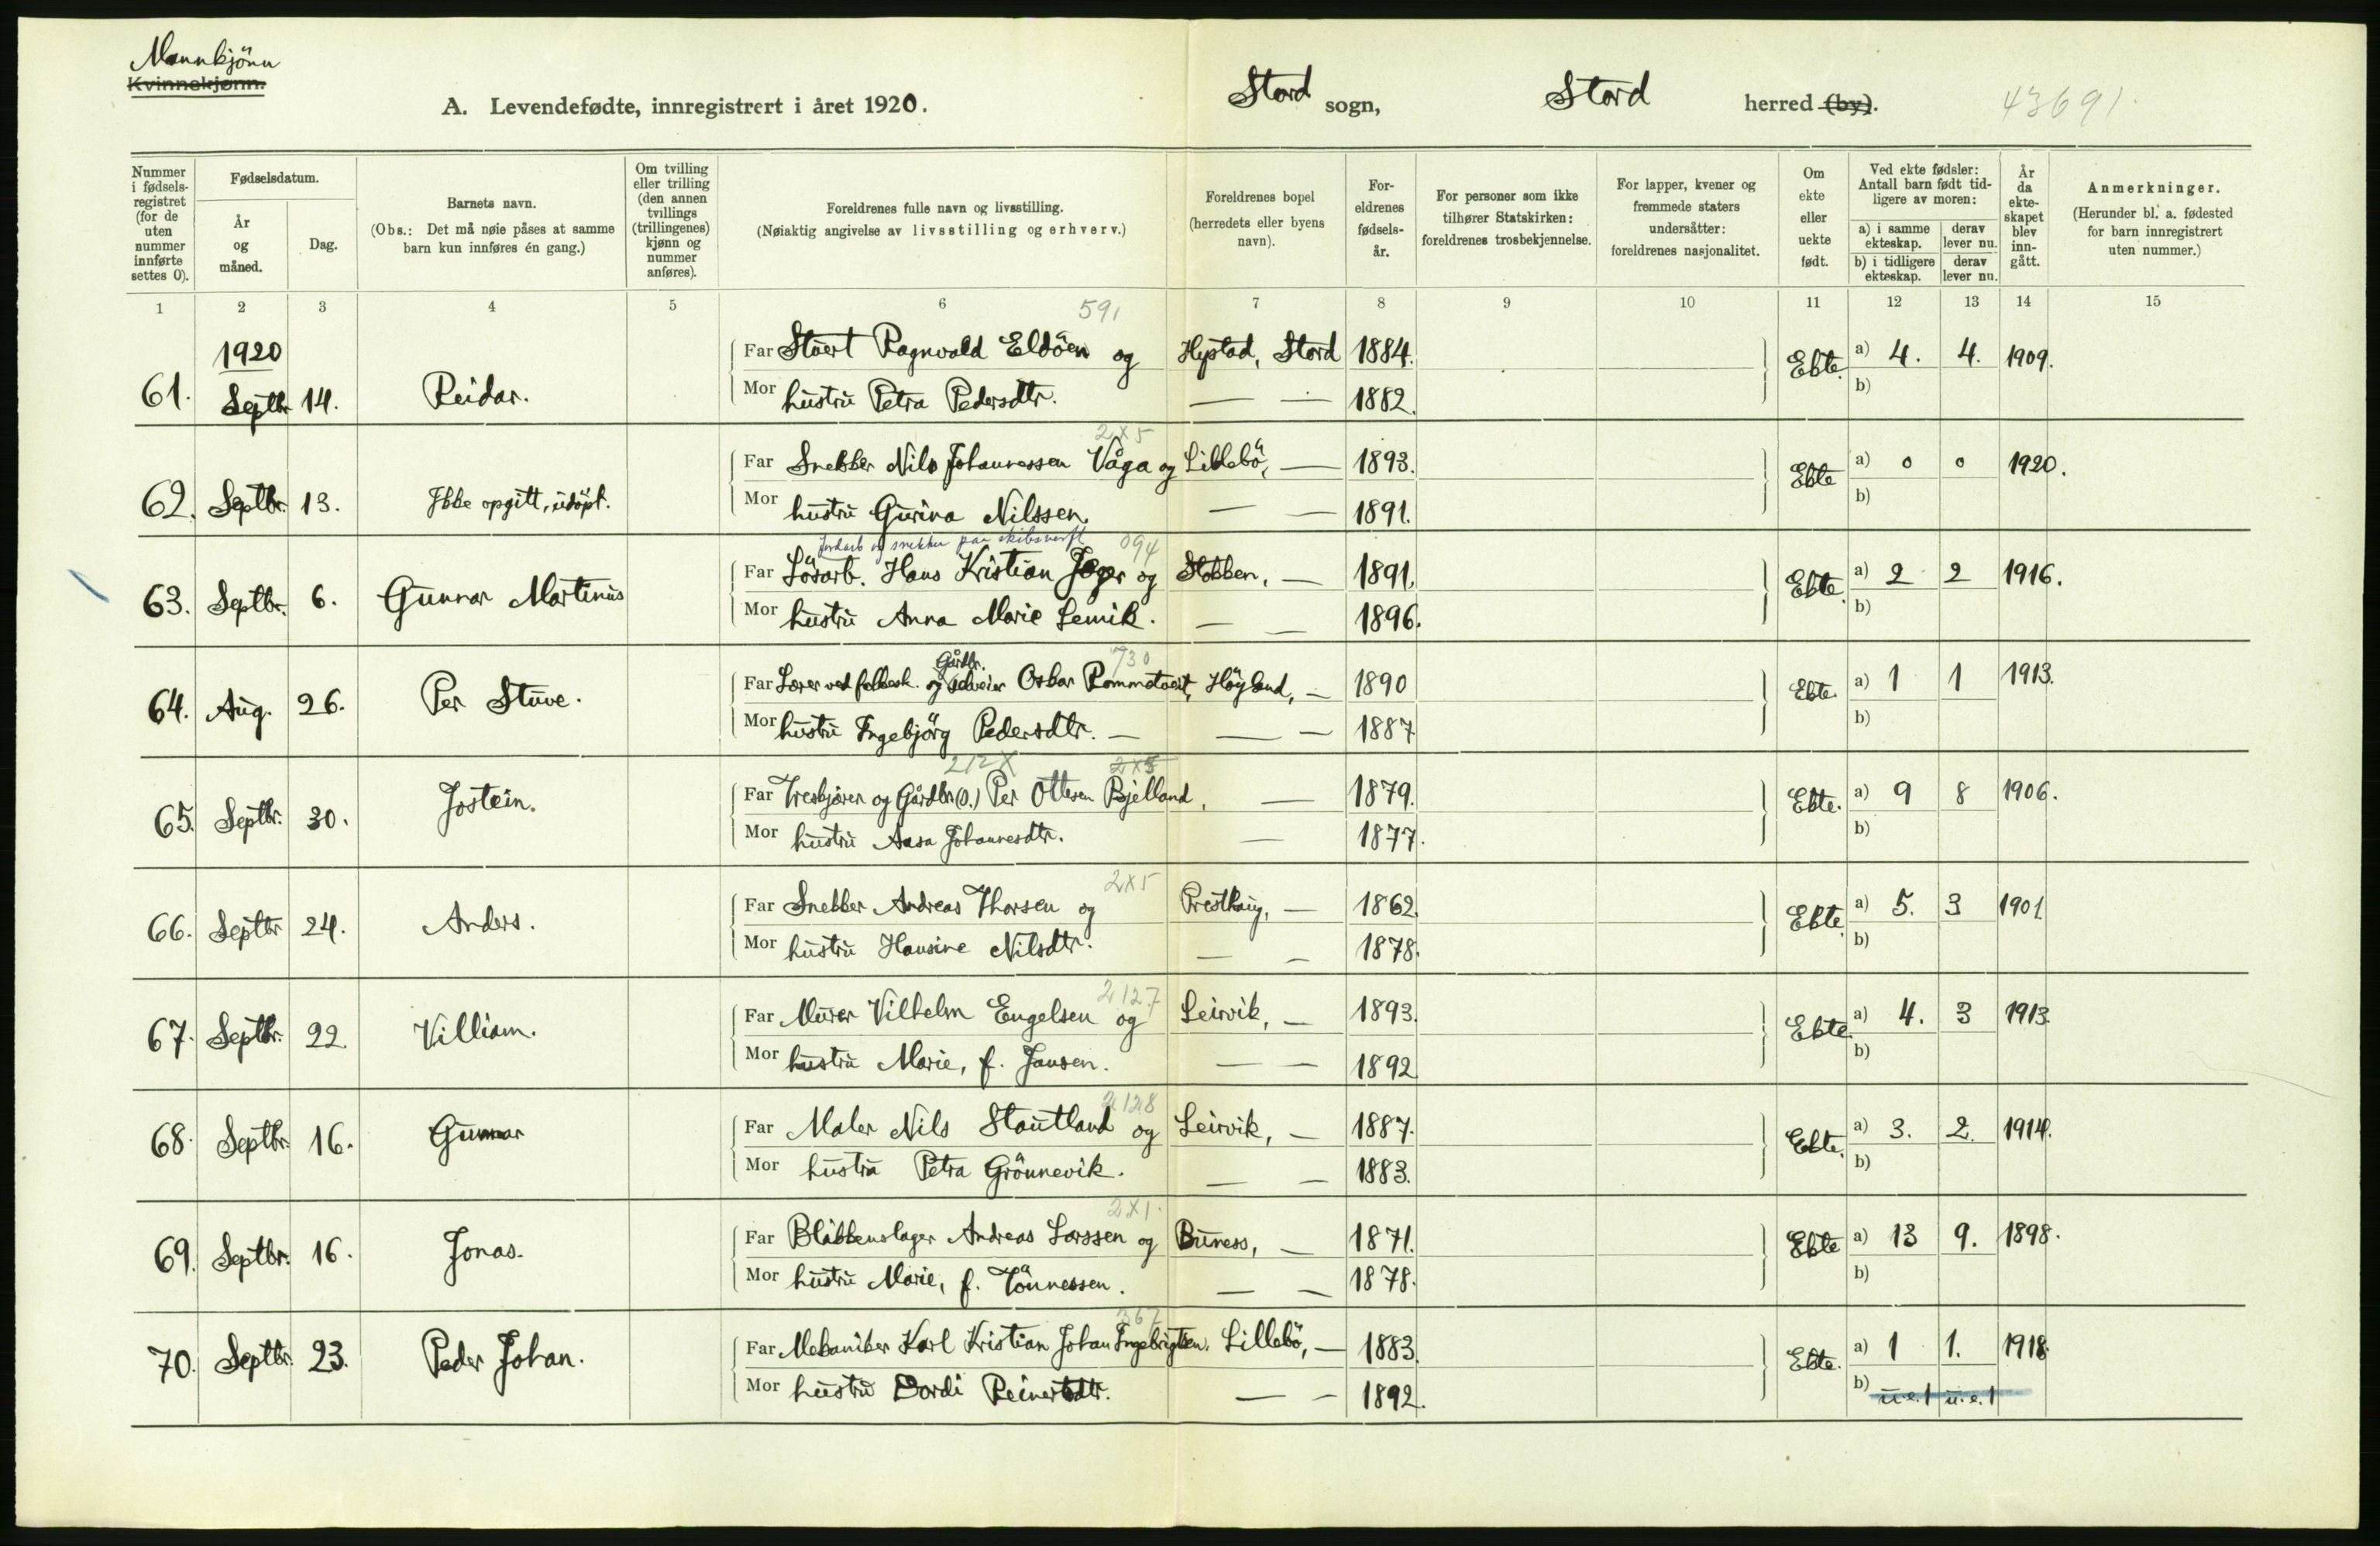 Mannkjönn
Kvinnekjønn.
A. Levendefødte, innregistrert i året 1920.
Stord sogn, Stord herred (by).
43691.
Nummer i fødselsregistret (for de uten nummer innførte settes 0).
Fødselsdatum.
År og måned.
Dag.
Barnets navn.
(Obs.: Det må nøie påses at samme barn kun innføres én gang.)
Om tvilling eller trilling (den annen tvillings (trillingenes) kjønn og nummer anføres).
Foreldrenes fulle navn og livsstilling.
(Nøiaktig angivelse av livsstilling og erhverv.)
Foreldrenes bopel (herredets eller byens navn).
Foreldrenes fødselsår.
For personer som ikke tilhører Statskirken: foreldrenes trosbekjennelse.
For lapper, kvener og fremmede staters undersåtter: foreldrenes nasjonalitet.
Om ekte eller uekte født.
Ved ekte fødsler: Antall barn født tidligere av moren:
a) i samme ekteskap.
derav lever nu.
b) i tidligere ekteskap.
derav lever nu.
År da ekteskapet blev inngått.
Anmerkninger.
(Herunder bl. a. fødested for barn innregistrert uten nummer.)
1 2 3 4 5 6 7 8 9 10 11 12 13 14 15
591
1920
61. Septb. 14. Reidar. Far Stuert Ragnvald Eldöen og Hystad, Stord 1884. Ekte. a) 4. 4. 1909.
Mor hustru Petra Pedersdtr. — — 1882. b)
2x5
62. Septbr. 13. Ikke opgitt, udöpt. Far Snekker Nils Johannessen Våga og Lillebö, — 1893. Ekte a) 0 0 1920.
Mor hustru Gurina Nilssen. — — 1891. b)
Jordarb og snekker paa skibsverft 094
63. Septbr. 6. Gunnar Martinus Far Lösarb. Hans Kristian Jæger og Stokken, — 1891. Ekte. a) 2 2 1916.
Mor hustru Anna Marie Lemik. — — 1896. b)
Gårdbr. 730
64. Aug. 26. Per Stuve. Far Lærer ved folkesk. og selveier Oskar Rommetveit, Höyland, — 1890 Ekte. a) 1 1 1913.
Mor hustru Ingebjörg Pedersdtr. — — — 1887 b)
212X 2x5
65. Septbr. 30. Jostein. Far Treskjærer og Gårdbr. (s.) Per Ottesen Bjelland, — 1879. Ekte. a) 9 8 1906.
Mor hustru Aasa Johannesdtr. — 1877. b)
2x5
66. Septbr 24. Anders. Far Snekker Andreas Thorsen og Presthaug, — 1862. Ekte. a) 5. 3 1901
Mor hustru Hansine Nilsdtr. — — 1878. b)
2127
67. Septbr. 22. Villiam. Far Murer Vilhelm Engelsen og Leirvik, — 1893. Ekte. a) 4. 3 1913.
Mor hustru Marie, f. Jansen. — — 1892 b)
2128
68. Septbr. 16. Gunnar Far Maler Nils Stautland og Leirvik, — 1887. Ekte. a) 3. 2. 1914.
Mor hustru Petra Grönnevik. — — 1883. b)
2x1.
69. Septbr. 16. Jonas. Far Blikkenslager Andreas Larssen og Buness, — 1871. Ekte a) 13 9. 1898.
Mor hustru Marie, f. Tönnessen. — — 1878. b)
367
70. Septbr. 23. Peder Johan. Far Mekaniker Karl Kristian Johan Ingebrigtsen. Lillebö, — 1883. Ekte. a) 1 1. 1918.
Mor hustru Dordi Reinertdtr. — — 1892. b) u.e. 1 u.e. 1